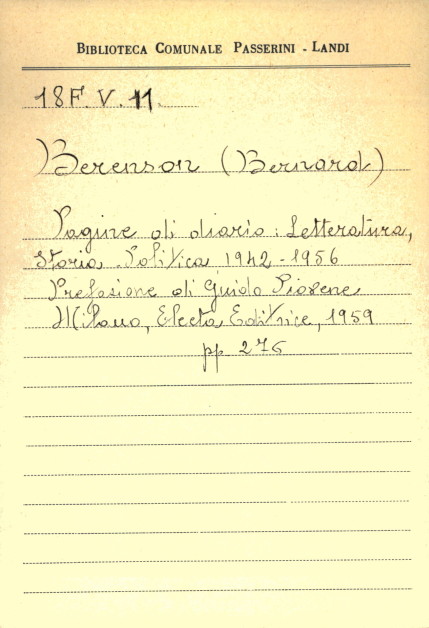 BIBLIOTECA COMUNALE PASSERINI - LANDI
18F. V. 11.
Berenson (Bernard)
Pagine di diario: Letteratura,
Storia Politica 1942-1956
Prefasione di Guido Piovene
Milano, Electa Editrice, 1959
pp 276